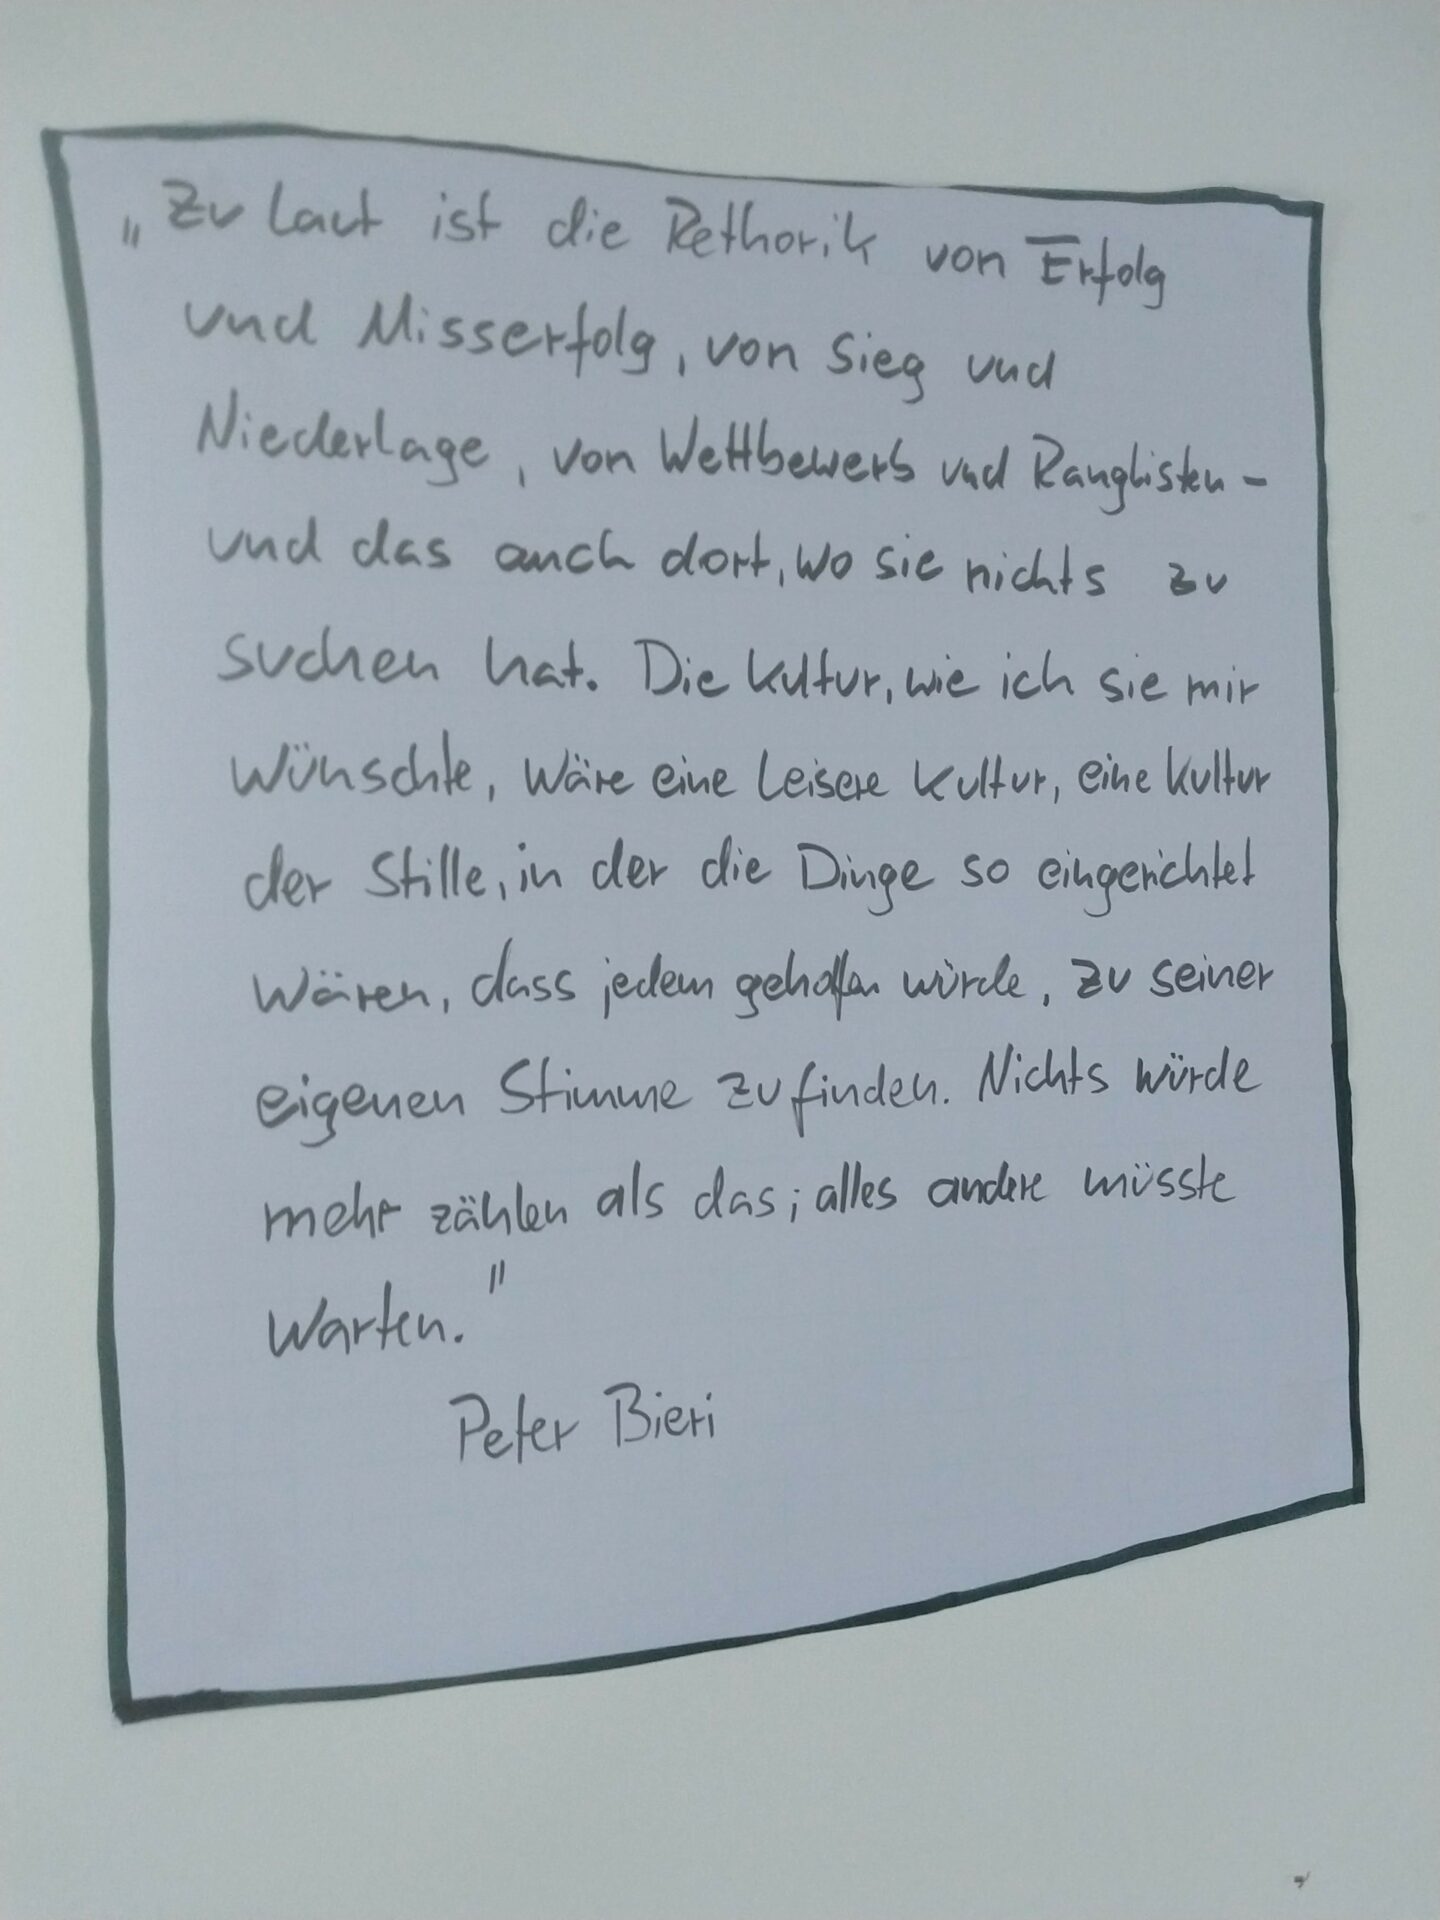 „Zu laut ist die Rethorik von Erfolg
und Misserfolg, von Sieg und
Niederlage, von Wettbewerb und Ranglisten -
und das auch dort, wo sie nichts zu
suchen hat. Die Kultur, wie ich sie mir
wünschte, wäre eine leisere Kultur, eine Kultur
der Stille, in der die Dinge so eingerichtet
wären, dass jedem geholfen würde, zu seiner
eigenen Stimme zu finden. Nichts würde
mehr zählen als das; alles andere müsste
warten."
Peter Bieri